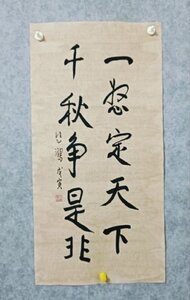 一怒定天下
千秋争是非
戊寅